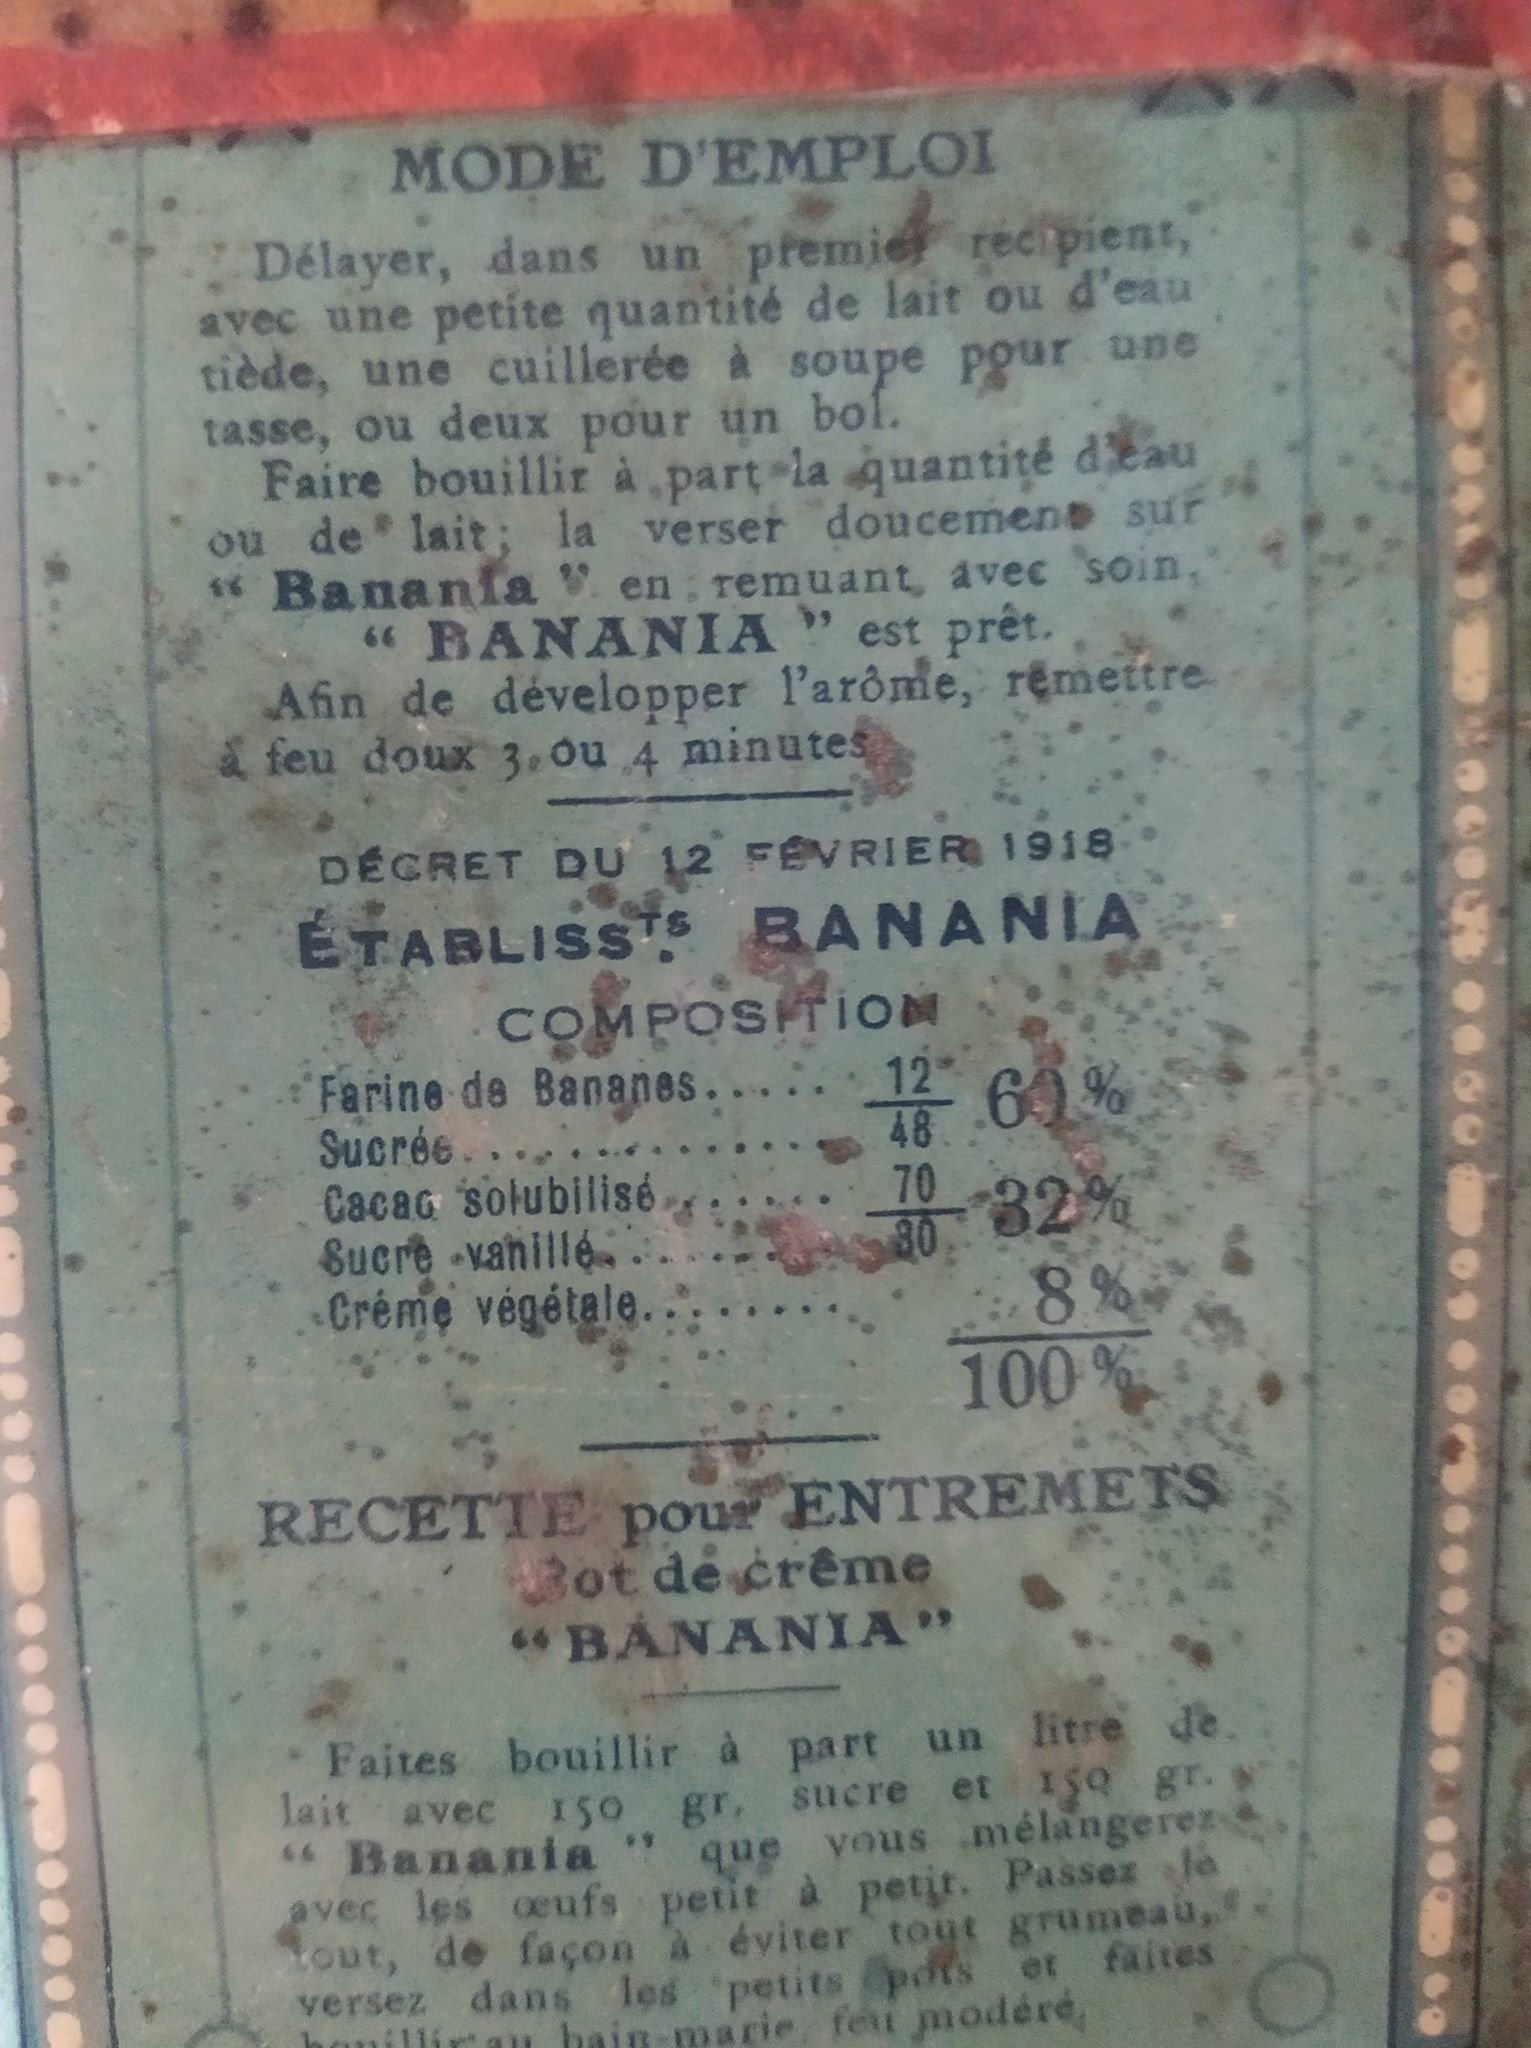 MODE D'EMPLOI
Délayer, dans un premier recipient,
avec une petite quantité de lait ou d'eau
tiède, une cuillerée à soupe pour une
tasse, ou deux pour un bol.
Faire bouillir à part la quantité d'eau
ou de lait; la verser doucement sur
“ Banania ” en remuant avec soin.
“ BANANIA ” est prêt.
Afin de développer l'arôme, remettre
à feu doux 3 ou 4 minutes
DÉCRET DU 12 FÉVRIER 1918
ÉTABLISSTS. BANANIA
COMPOSITION
Farine de Bananes..... 12 60 %
Sucrée.............. 48
Cacao solubilisé....... 70 32 %
Sucre vanillé........ 30
Crême végétale........ 8 %
100 %
RECETTE pour ENTREMETS
Pot de crême
“BANANIA”
Faites bouillir à part un litre de
lait avec 150 gr. sucre et 150 gr.
“ Banania ” que vous mélangerez
avec les œufs petit à petit. Passez le
tout, de façon à éviter tout grumeau,
versez dans les petits pots et faites
bouillir au bain-marie, feu modéré.